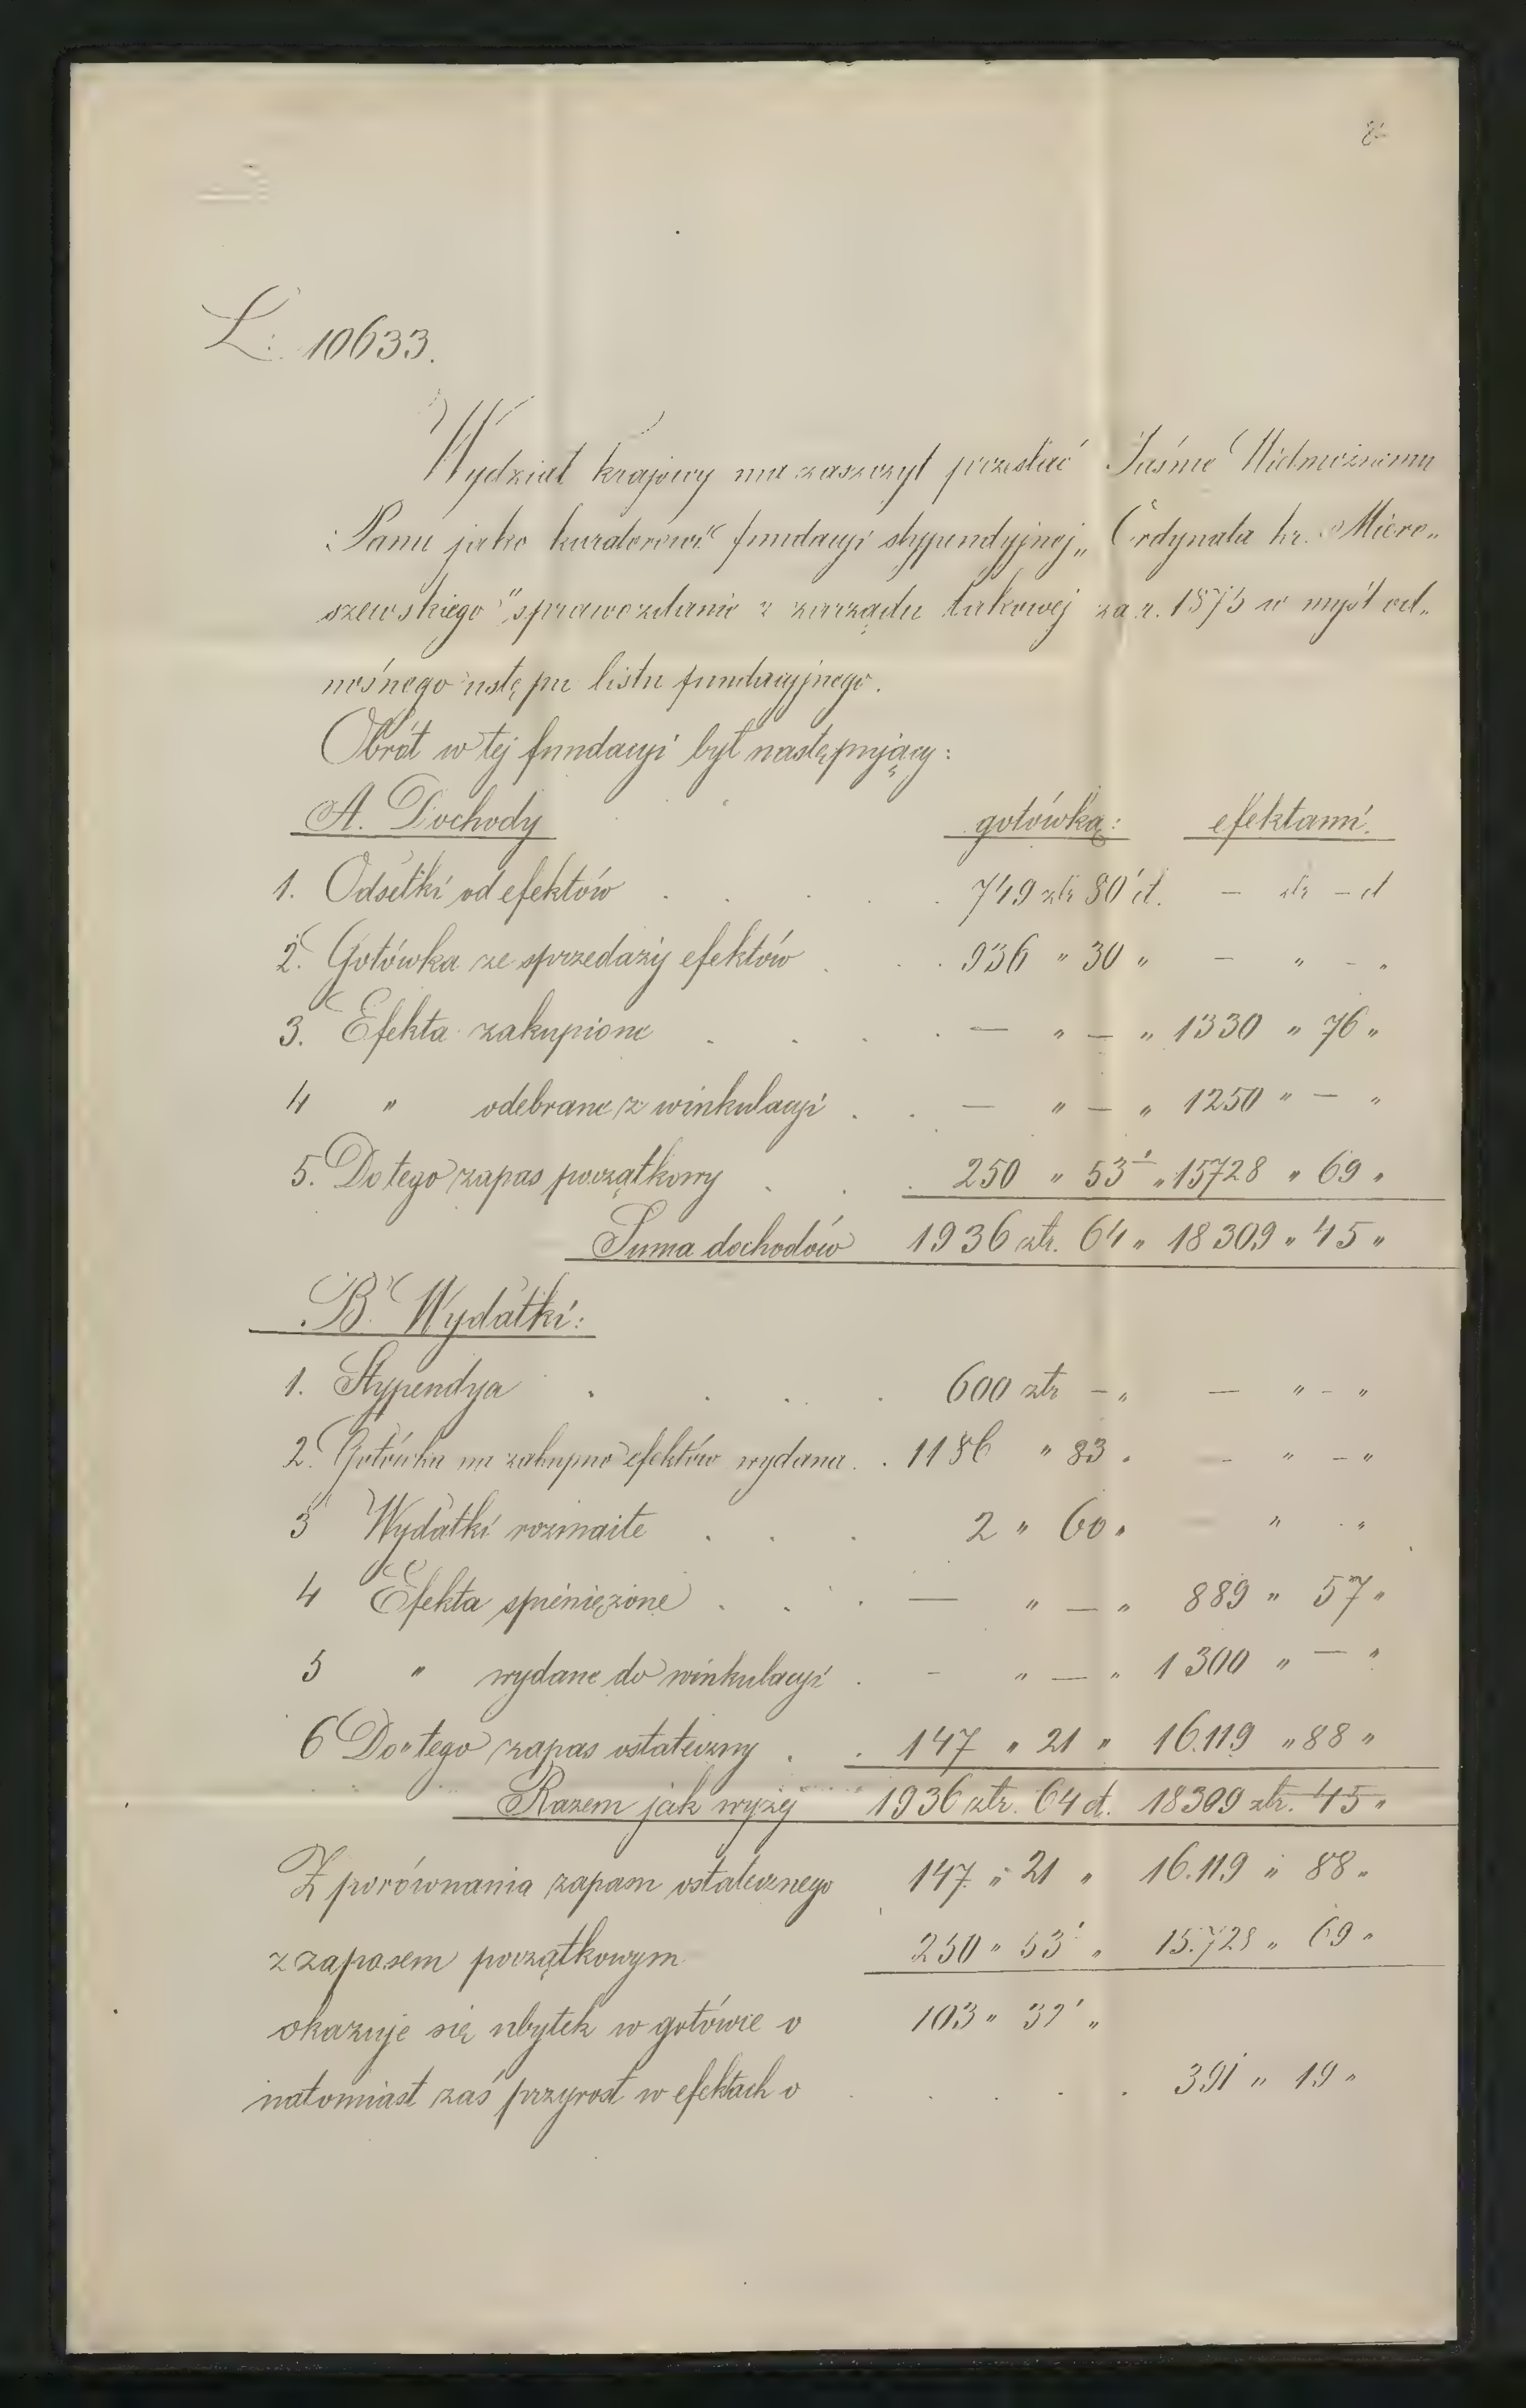 L: 10633.
Wydział krajowy ma zaszczyt przesłać Jaśnie Wielmożnemu
Panu jako kuratorowi fundacyi stypendyjnej „Ordynata hr. Miero„
szewskiego" sprawozdanie z zarządu takowej za r. 1875 w myśl od„
nośnego ustępu listu fundacyjnego.
Obrót w tej fundacyi był następujący:
A. Dochody gotówką: efektami.
1. Odsetki od efektów . . . . 749 złr 80 ct. – złr – ct
2. Gotówka ze sprzedaży efektów . . . 936 " 30 " – " – "
3. Efekta zakupione . . . . — " — " 1330 " 76 "
4 " odebrane z winkulacyi . . — " — " 1250 " — "
5. Do tego zapas początkowy . . . 250 " 53 " 15728 " 69 "
Suma dochodów 1936 złr. 64 " 18309 " 45 "
B. Wydatki:
1. Stypendya . . . . 600 złr – " — " – "
2. Gotówka na zakupno efektów wydana . . 1186 " 83 " – " – "
3 Wydatki rozmaite . . . 2 " 60 " " "
4 Efekta spieniężone . . . — " — " 889 " 57 "
5 " wydane do winkulacyi . – " — " 1300 " — "
6 Do tego zapas ostateczny . . 147 " 21 " 16.119 " 88 "
Razem jak wyżej 1936 złr. 64 ct. 18309 złr. 45 "
Z porównania zapasu ostatecznego 147 " 21 " 16.119 " 88 "
z zapasem początkowym 250 " 53 " 15.728 " 69 "
okazuje się ubytek w gotówce o 103 " 32 "
natomiast zaś przyrost w efektach o . . . . 391 " 19 "